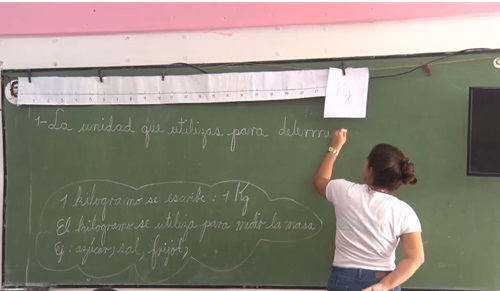 Kg
1-La unidad que utilizas para determi
1 kilogramo se escribe : 1 Kg
El kilogramo se utiliza para medir la masa
Ej : azúcar, sal, frijol,